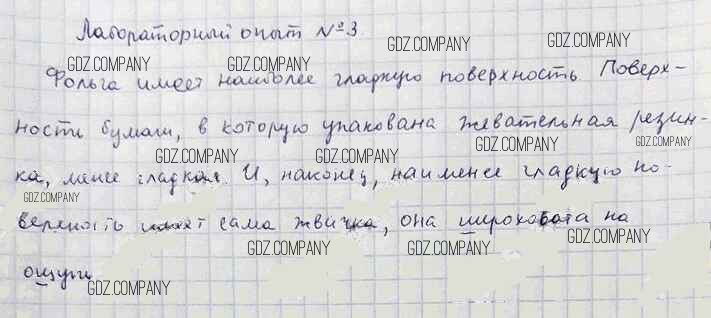 Лабораторный опыт №3
GDZ.COMPANY GDZ.COMPANY
GDZ.COMPANY GDZ.COMPANY
Фольга имеет наиболее гладкую поверхность Поверх-
ности бумаги, в которую упакована жевательная резин-
GDZ.COMPANY GDZ.COMPANY GDZ.COMPANY
ка, менее гладкая. И, наконец, наименее гладкую по-
GDZ.COMPANY
верхность имеет сама жвачка, она шероховата на
GDZ.COMPANY GDZ.COMPANY GDZ.COMPANY
ощупь
GDZ.COMPANY